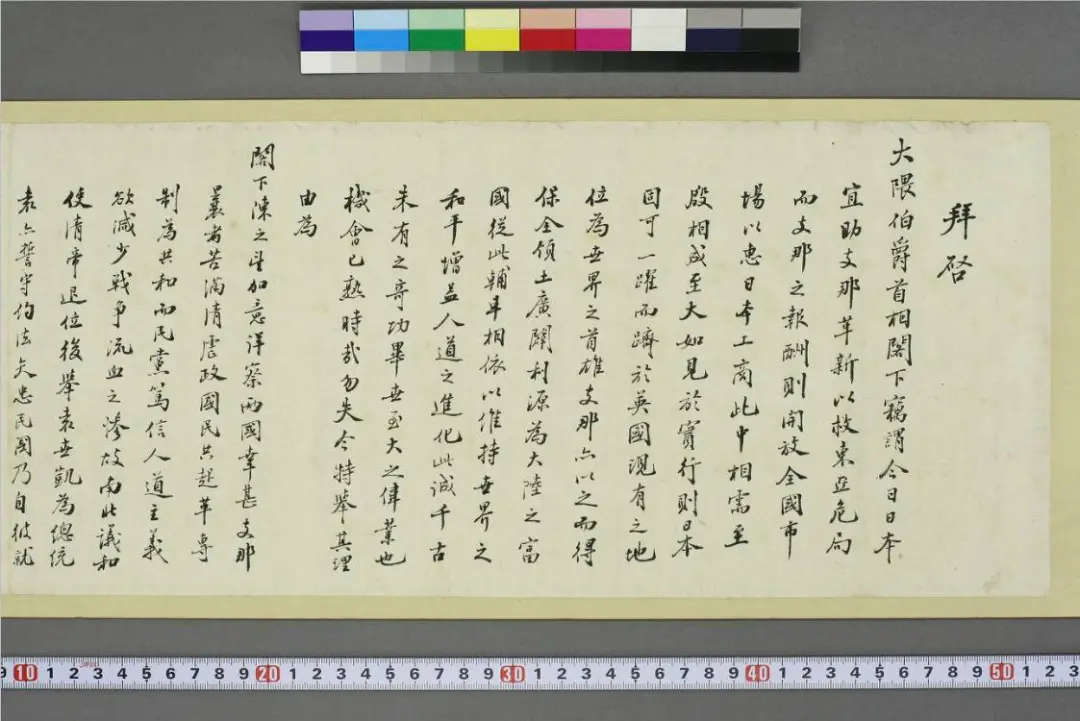 拜啓
大隈伯爵首相閣下竊謂今日日本
宜助支那革新以救東亞危局
而支那之報酬則開放全國市
場以惠日本工商此中相需至
殷相成至大如見於實行則日本
固可一躍而躋於英國現有之地
位為世界之首雄支那亦以之而得
保全領土廣闢利源為大陸之富
國從此輔車相依以維持世界之
和平增益人道之進化此誠千古
未有之奇功畢世至大之偉業也
機會已熟時哉勿失今特舉其理
由為
閣下陳之望加意詳察兩國幸甚支那
曩者苦滿清虐政國民共起革專
制為共和而民黨篤信人道主義
欲減少戰爭流血之慘故南北議和
使清帝退位後舉袁世凱為總統
袁亦誓守約法矢忠民國乃自彼就
9 10 1 2 3 4 5 6 7 8 9 20 1 2 3 4 5 6 7 8 9 30 1 2 3 4 5 6 7 8 9 40 1 2 3 4 5 6 7 8 9 50 1 2 3